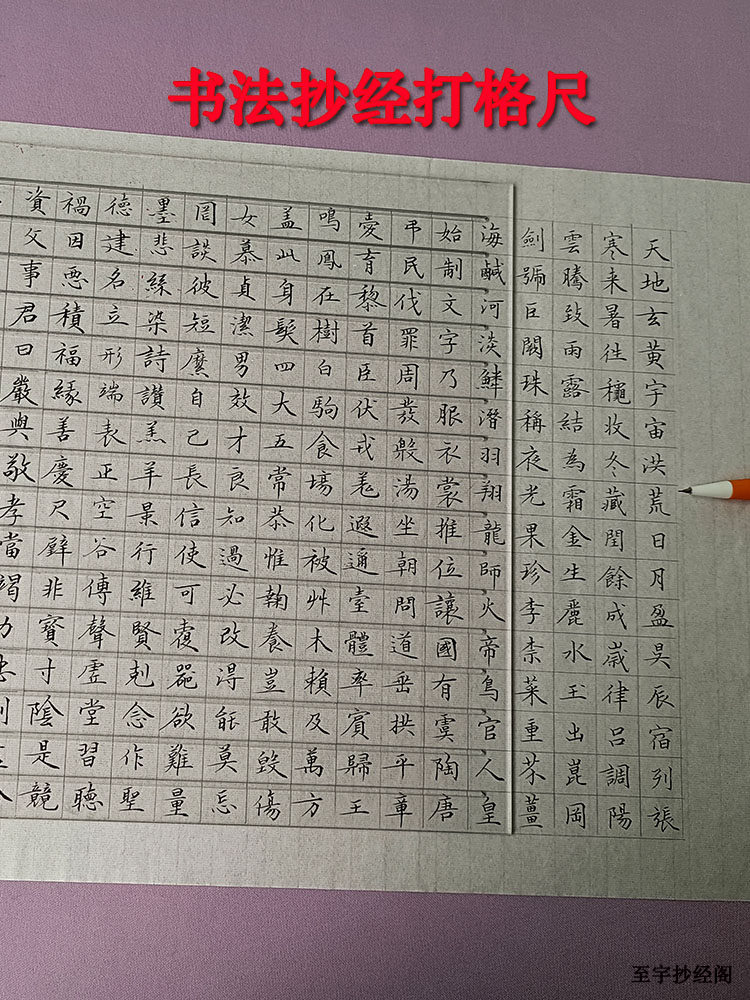 书法抄经打格尺
天地玄黃宇宙洪荒日月盈昃辰宿列張
寒来暑往穐收冬藏閏餘成歲律吕調陽
雲騰致雨露結為霜金生麗水玉出崑岡
劍號巨闕珠稱夜光果珍李柰菜重芥薑
海鹹河淡鱗潛羽翔龍師火帝鳥官人皇
始制文字乃服衣裳推位讓國有虞陶唐
弔民伐罪周發殷湯坐朝問道垂拱平章
愛育黎首臣伏戎羌遐邇壹體率賓歸王
鳴鳳在樹白駒食場化被艸木賴及萬方
盖此身髮四大五常恭惟鞠養豈敢毀傷
女慕貞潔男效才良知過必改得能莫忘
罔談彼短靡自己長信使可覆器欲難量
墨悲絲染詩讚羔羊景行維賢剋念作聖
德建名立形端表正空谷傳聲虛堂習聽
禍因惡積福緣善慶尺璧非寶寸陰是競
資父事君曰嚴與敬孝當竭力
至宇抄经阁